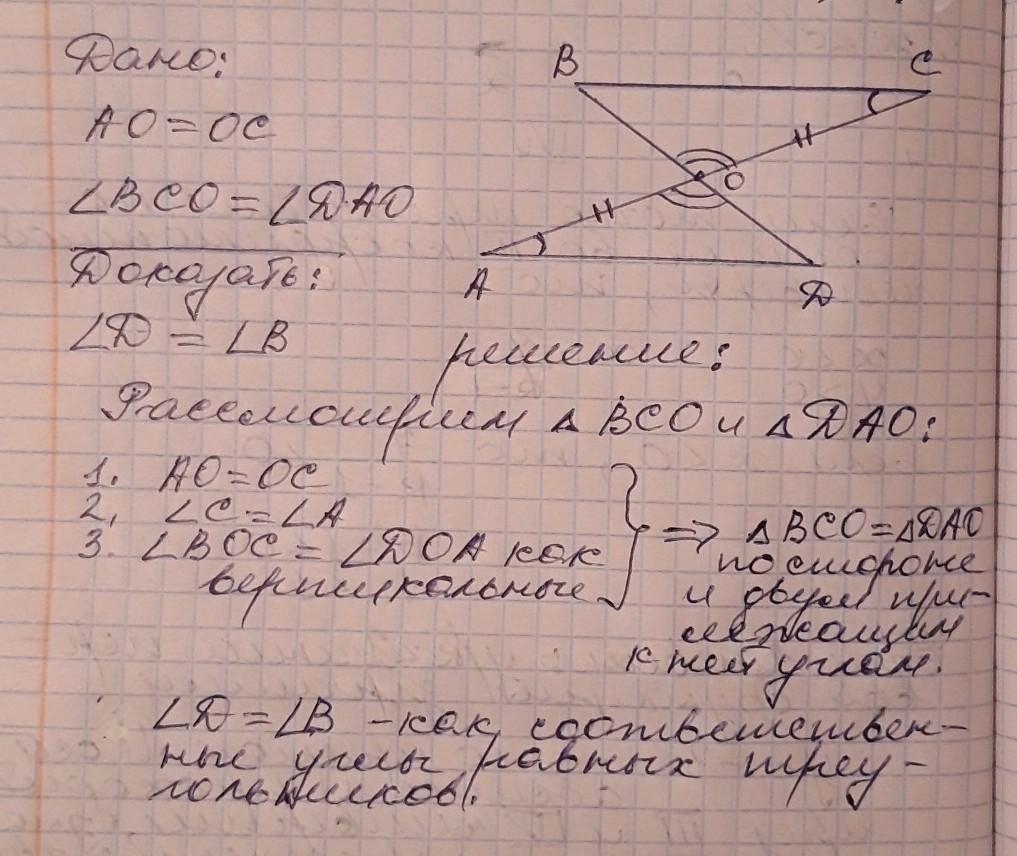 Дано:
AO = OC
∠BCO = ∠DAO
Доказать:
∠D = ∠B
B
C
O
A
D
решение:
Рассмотрим △ BCO и △ DAO:
1. AO = OC
2. ∠C = ∠A
3. ∠BOC = ∠DOA как
вертикальные
⇒ △ BCO = △DAO
по стороне
и двум при-
лежащим
к ней углам.
∠D = ∠B - как соответствен-
ные углы равных треу-
гольников.